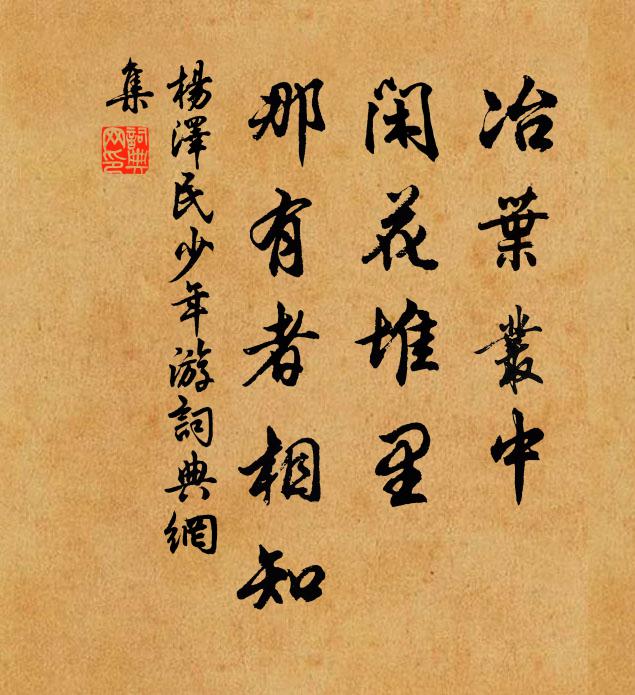 冶葉叢中
閑花堆里
那有者相知
楊澤民少年游詞典網
集
詞典網印